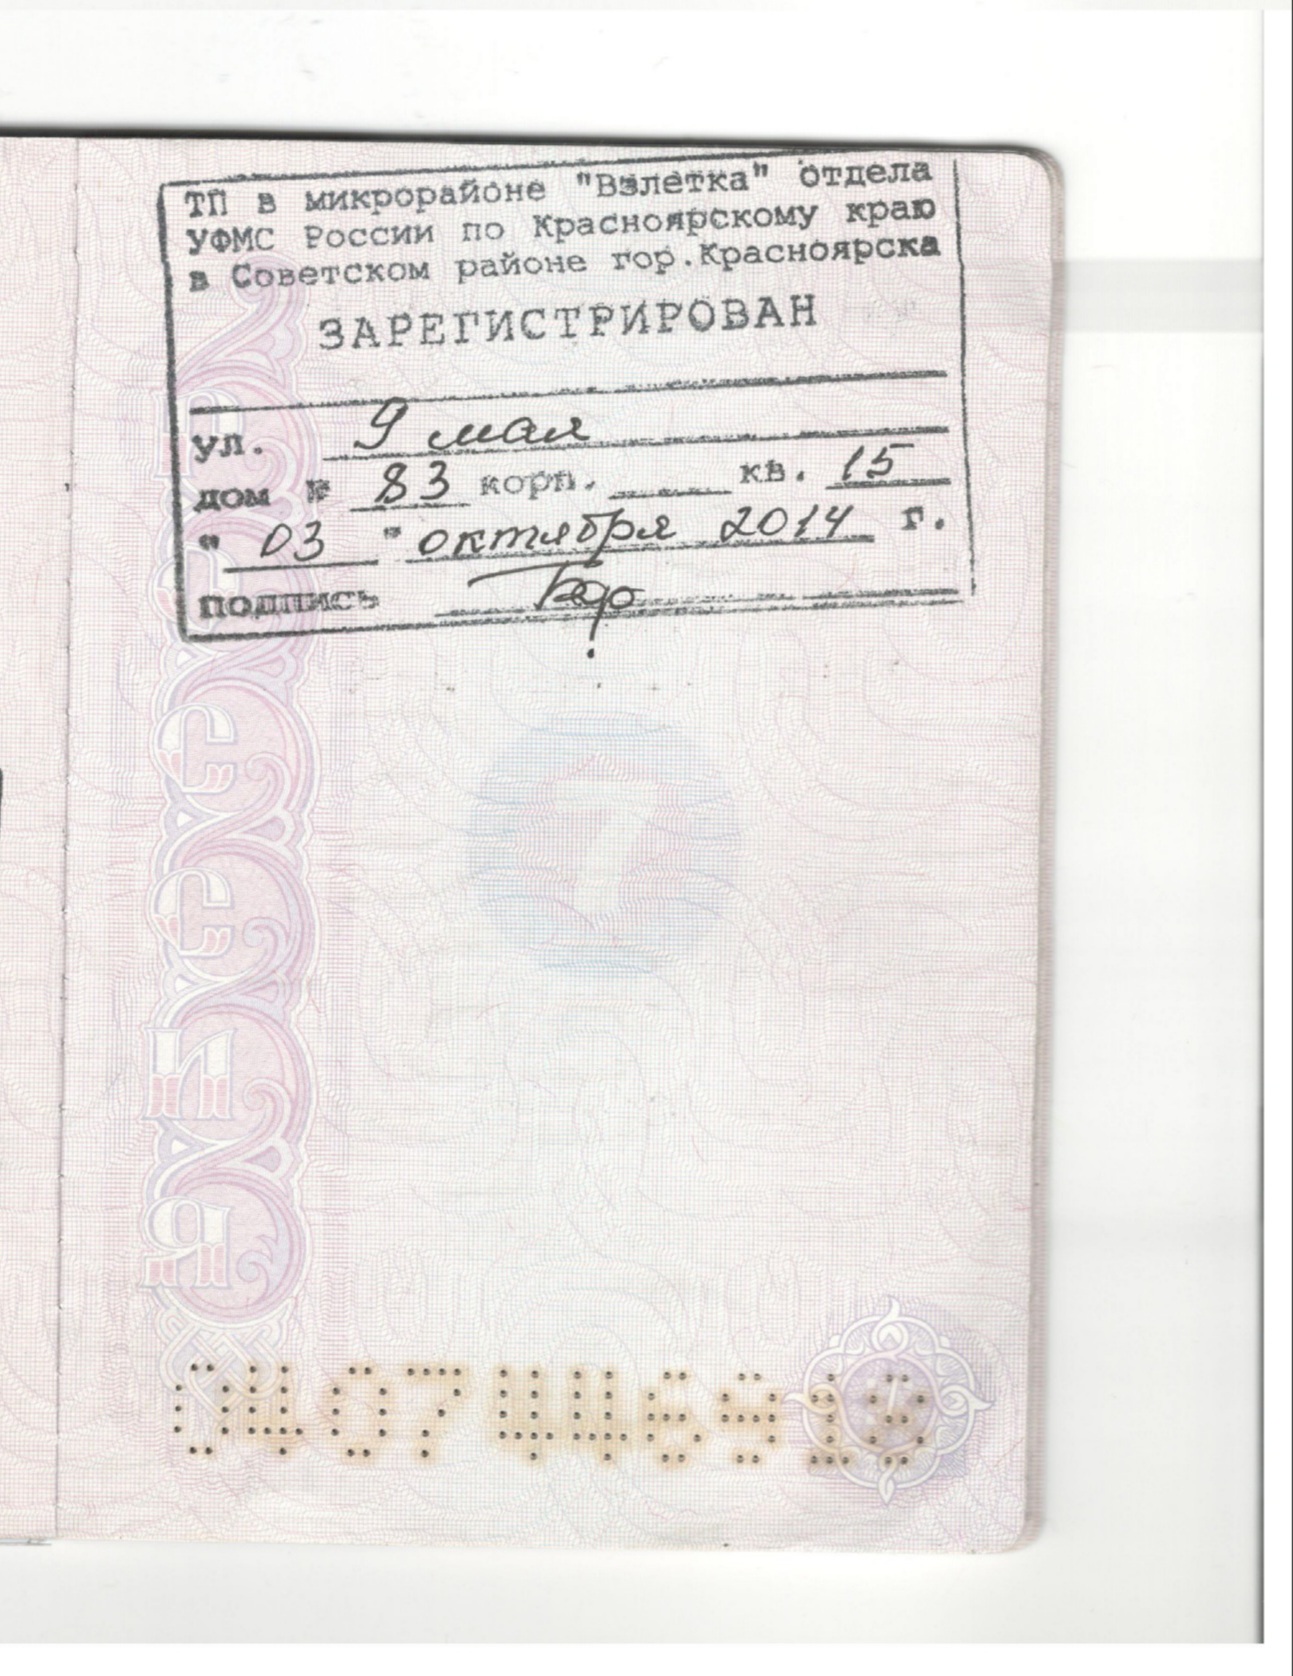 ТП в микрорайоне "Взлетка" отдела
УФМС России по Красноярскому краю
в Советском районе гор.Красноярска
ЗАРЕГИСТРИРОВАН
ул. 9 мая
дом № 83 корп. кв. 15
" 03 " октября 2014 г.
подпись
7
ССИЯ
0407446918